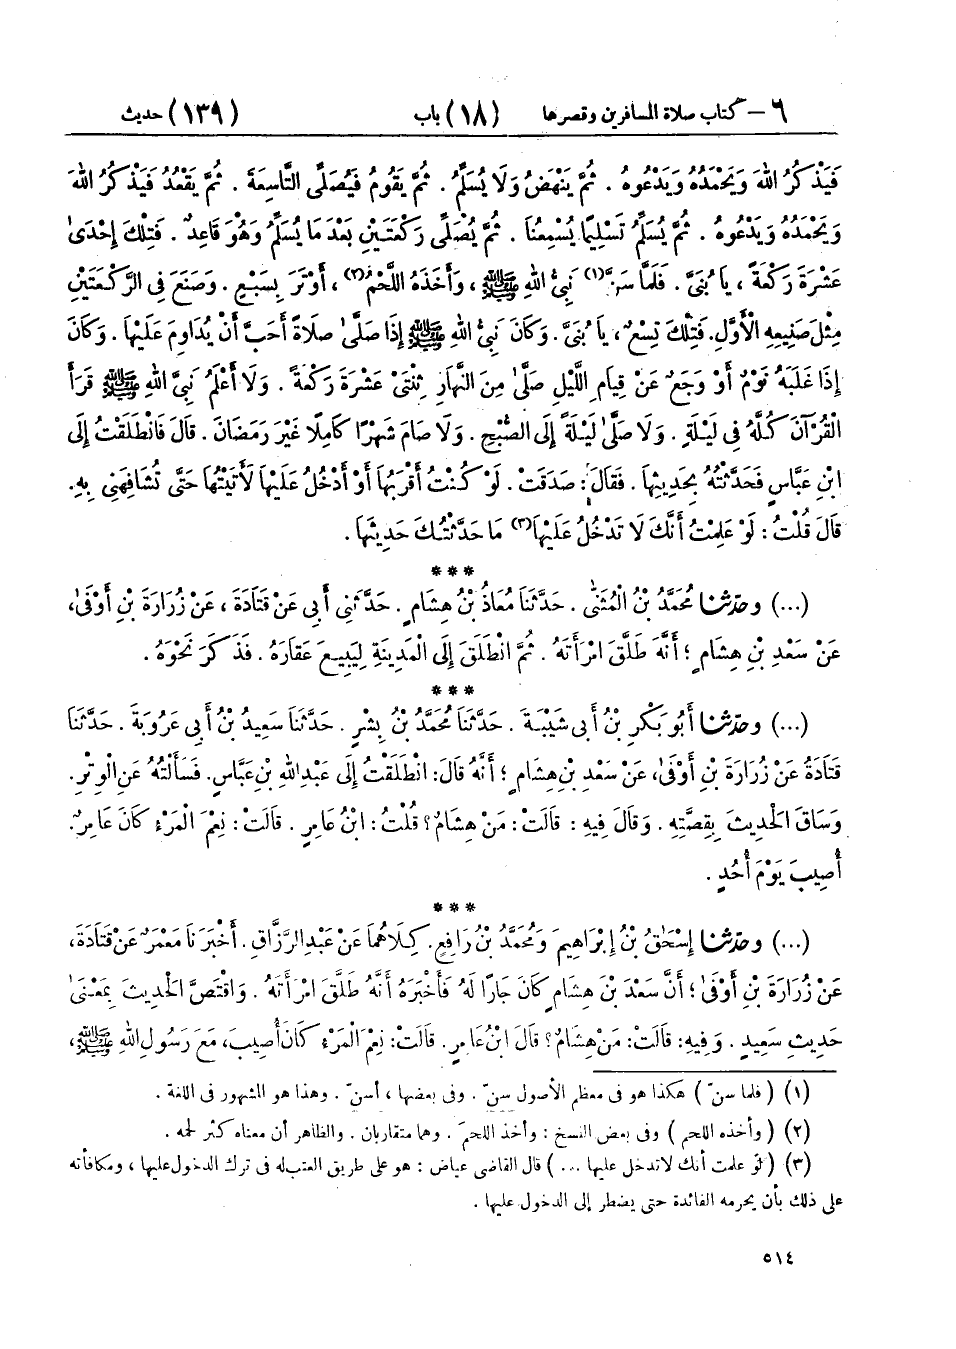 ٦ – كتاب صلاة المسافرين وقصرها (١٨) باب (١٣٩) حديث
فَيَذْكُرُ اللهَ وَيَحْمَدُهُ وَيَدْعُوهُ . ثُمَّ يَنْهَضُ وَلَا يُسَلِّمُ . ثُمَّ يَقُومُ فَيُصَلِّى التَّاسِعَةَ . ثُمَّ يَقْعُدُ فَيَذْكُرُ اللهَ
وَيَحْمَدُهُ وَيَدْعُوهُ . ثُمَّ يُسَلِّمُ تَسْلِيمًا يُسْمِعُنَا . ثُمَّ يُصَلِّى رَكْعَتَيْنِ بَعْدَ مَا يُسَلِّمُ وَهُوَ قَاعِدٌ . فَتِلْكَ إِحْدَىٰ
عَشْرَةَ رَكْعَةً ، يَا بُنَىَّ . فَلَمَّا سَنَّ(١) نَبِىُّ اللهِ ﷺ ، وَأَخَذَهُ اللَّحْمُ(٢) ، أَوْتَرَ بِسَبْعٍ . وَصَنَعَ فِى الرَّكْعَتَيْنِ
مِثْلَ صَنِيعِهِ الْأَوَّلِ. فَتِلْكَ تِسْعٌ ، يَا بُنَىَّ . وَكَانَ نَبِىُّ اللهِ ﷺ إِذَا صَلَّىٰ صَلَاةً أَحَبَّ أَنْ يُدَاوِمَ عَلَيْهَا . وَكَانَ
إِذَا غَلَبَهُ نَوْمٌ أَوْ وَجَعٌ عَنْ قِيَامِ اللَّيْلِ صَلَّىٰ مِنَ النَّهَارِ ثِنْتَىْ عَشْرَةَ رَكْعَةً . وَلَا أَعْلَمُ نَبِىَّ اللهِ ﷺ قَرَأَ
الْقُرْآنَ كُلَّهُ فِى لَيْلَةٍ . وَلَا صَلَّىٰ لَيْلَةً إِلَى الصُّبْحِ . وَلَا صَامَ شَهْرًا كَامِلًا غَيْرَ رَمَضَانَ . قَالَ فَانْطَلَقْتُ إِلَى
ابْنِ عَبَّاسٍ فَحَدَّثْتُهُ بِحَدِيثِهَا . فَقَالَ : صَدَقَتْ . لَوْ كُنْتُ أَقْرَبُهَا أَوْ أَدْخُلُ عَلَيْهَا لَأَتَيْتُهَا حَتَّى تُشَافِهَنِى بِهِ.
قَالَ قُلْتُ : لَوْ عَلِمْتُ أَنَّكَ لَا تَدْخُلُ عَلَيْهَا(٣) مَا حَدَّثْتُكَ حَدِيثَهَا .
***
(...) وحَدَّثَنَا مُحَمَّدُ بْنُ الْمُثَنَّىٰ . حَدَّثَنَا مُعَاذُ بْنُ هِشَامٍ . حَدَّثَنِى أَبِى عَنْ قَتَادَةَ ، عَنْ زُرَارَةَ بْنِ أَوْفَىٰ ،
عَنْ سَعْدِ بْنِ هِشَامٍ ؛ أَنَّهُ طَلَّقَ امْرَأَتَهُ . ثُمَّ انْطَلَقَ إِلَى الْمَدِينَةِ لِيَبِيعَ عَقَارَهُ . فَذَكَرَ نَحْوَهُ .
***
(...) وحَدَّثَنَا أَبُو بَكْرِ بْنُ أَبِى شَيْبَةَ . حَدَّثَنَا مُحَمَّدُ بْنُ بِشْرٍ . حَدَّثَنَا سَعِيدُ بْنُ أَبِى عَرُوبَةَ . حَدَّثَنَا
قَتَادَةُ عَنْ زُرَارَةَ بْنِ أَوْفَىٰ، عَنْ سَعْدِ بْنِ هِشَامٍ ؛ أَنَّهُ قَالَ: انْطَلَقْتُ إِلَى عَبْدِ اللهِ بْنِ عَبَّاسٍ. فَسَأَلْتُهُ عَنِ الْوِتْرِ.
وَسَاقَ الْحَدِيثَ بِقِصَّتِهِ . وَقَالَ فِيهِ : قَالَتْ : مَنْ هِشَامٌ؟ قُلْتُ : ابْنُ عَامِرٍ . قَالَتْ : نِعْمَ الْمَرْءُ كَانَ عَامِرٌ.
أُصِيبَ يَوْمَ أُحُدٍ .
***
(...) وحَدَّثَنَا إِسْحَٰقُ بْنُ إِبْرَاهِيمَ وَمُحَمَّدُ بْنُ رَافِعٍ. كِلَاهُمَا عَنْ عَبْدِ الرَّزَّاقِ . أَخْبَرَنَا مَعْمَرٌ عَنْ قَتَادَةَ،
عَنْ زُرَارَةَ بْنِ أَوْفَىٰ ؛ أَنَّ سَعْدَ بْنَ هِشَامٍ كَانَ جَارًا لَهُ فَأَخْبَرَهُ أَنَّهُ طَلَّقَ امْرَأَتَهُ . وَاقْتَصَّ الْحَدِيثَ بِمَعْنَىٰ
حَدِيثِ سَعِيدٍ . وَفِيهِ: قَالَتْ: مَنْ هِشَامٌ؟ قَالَ ابْنُ عَامِرٍ. قَالَتْ: نِعْمَ الْمَرْءُ كَانَ أُصِيبَ، مَعَ رَسُولِ اللهِ ﷺ،
(١) ( فلما سنّ ) هكذا هو فى معظم الأصول سنّ . وفى بعضها ، أسنّ . وهذا هو المشهور فى اللغة .
(٢) ( وأخذه اللحم ) وفى بعض النسخ : وأخذ اللحمَ . وهما متقاربان . والظاهر أن معناه كثر لحمه .
(٣) ( لو علمت أنك لا تدخل عليها ... ) قال القاضى عياض : هو على طريق العتب له فى ترك الدخول عليها ، ومكافأته
على ذلك بأن يحرمه الفائدة حتى يضطر إلى الدخول عليها .
٥١٤